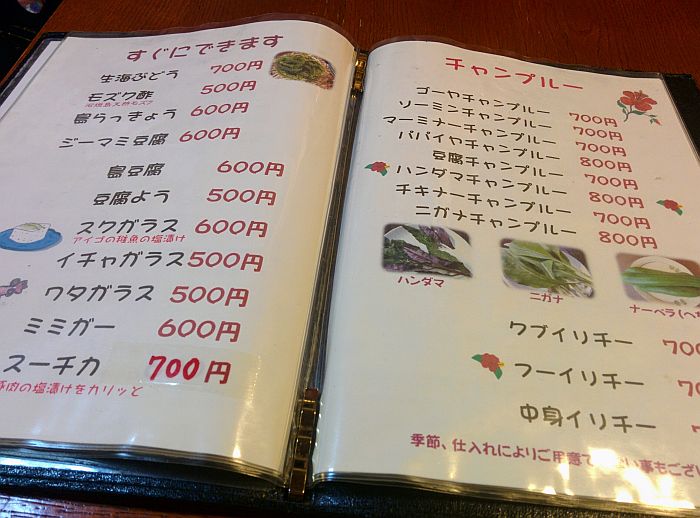 すぐにできます
生海ぶどう 700円
モズク酢 500円
島らっきょう 600円
ジーマミ豆腐 600円
島豆腐 600円
豆腐よう 500円
スクガラス 600円
アイゴの稚魚の塩漬け
イチャガラス 500円
ワタガラス 500円
ミミガー 600円
スーチカ 700円
豚肉の塩漬けをカリッと
チャンプルー
ゴーヤチャンプルー 700円
ソーミンチャンプルー 700円
マーミナーチャンプルー 700円
パパイヤチャンプルー 800円
豆腐チャンプルー 700円
ハンダマチャンプルー 800円
チキナーチャンプルー 700円
ニガナチャンプルー 800円
ハンダマ
ニガナ
ナーベラ(へち
ワブイリチー 700
フーイリチー 70
中身イリチー 7
季節、仕入れによりご用意で い事もござ